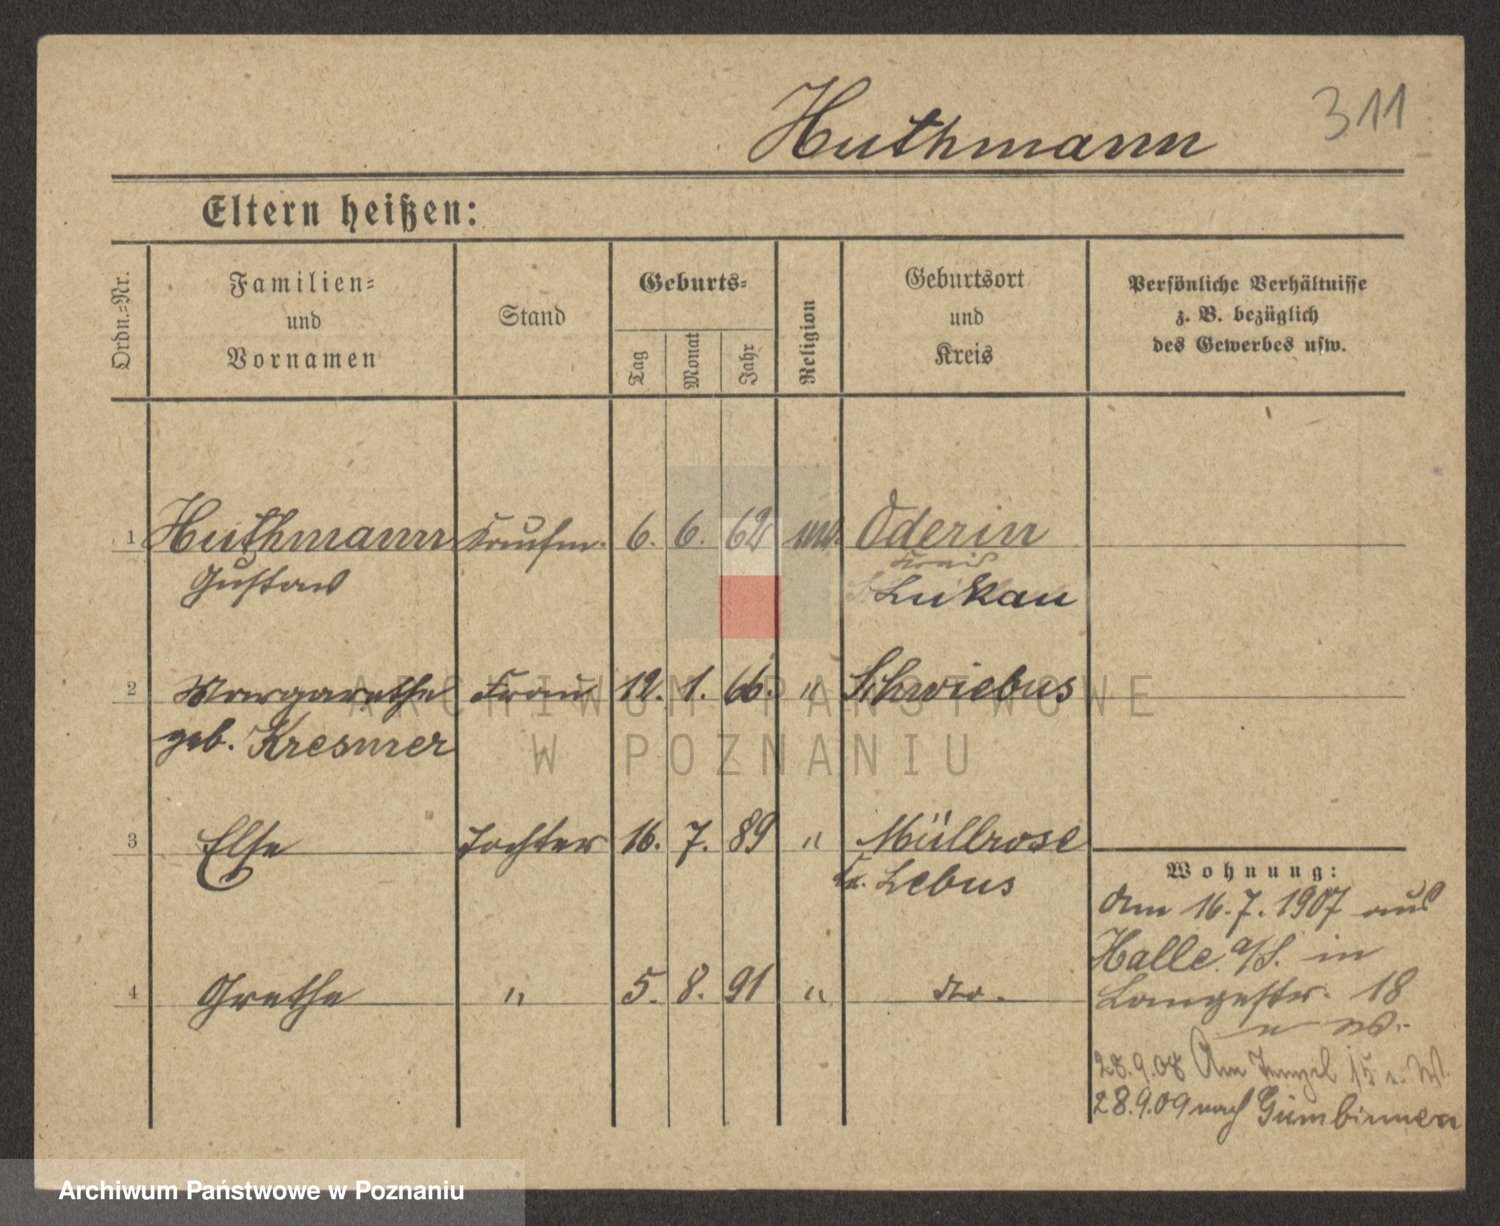 Huthmann 311
Eltern heißen:
Ordn.-Nr.
Familien=
und
Vornamen
Stand
Geburts=
Tag
Monat
Jahr
Religion
Geburtsort
und
Kreis
Persönliche Verhältnisse
z. B. bezüglich
des Gewerbes usw.
1 Huthmann Kaufm. 6. 6. 62 Oderin
Gustav Kreis
Lukau
2 Margarethe Frau 12. 1. 66. " Schwiebus
geb. Kresmer
3 Else Tochter 16. 7. 89 " Müllrose
Kr. Lebus
4 Grethe " 5. 8. 91 " do.
Wohnung:
Am 16.7.1907 aus
Halle a/S. in
Langestr. 18
28.9.08 Am 15
28.9.09 nach Gumbinnen
ARCHIWUM PAŃSTWOWE
W POZNANIU
Archiwum Państwowe w Poznaniu